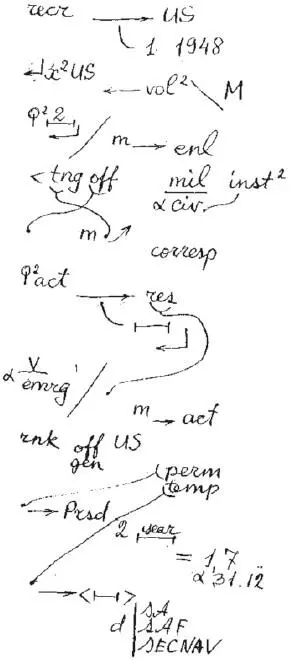 recr → US
1. 1948
x² US
← vol² M
φ² 2
m → enl
< tng off
mil inst²
α civ.
m ↗
corresp
φ² act
→ res
α V
emrg'
m → act
rnk off US
gen
(perm
→ Prsd
temp
2 sear
= 1,7
α 31.12
→ < >
d SA
SAF
SECNAV